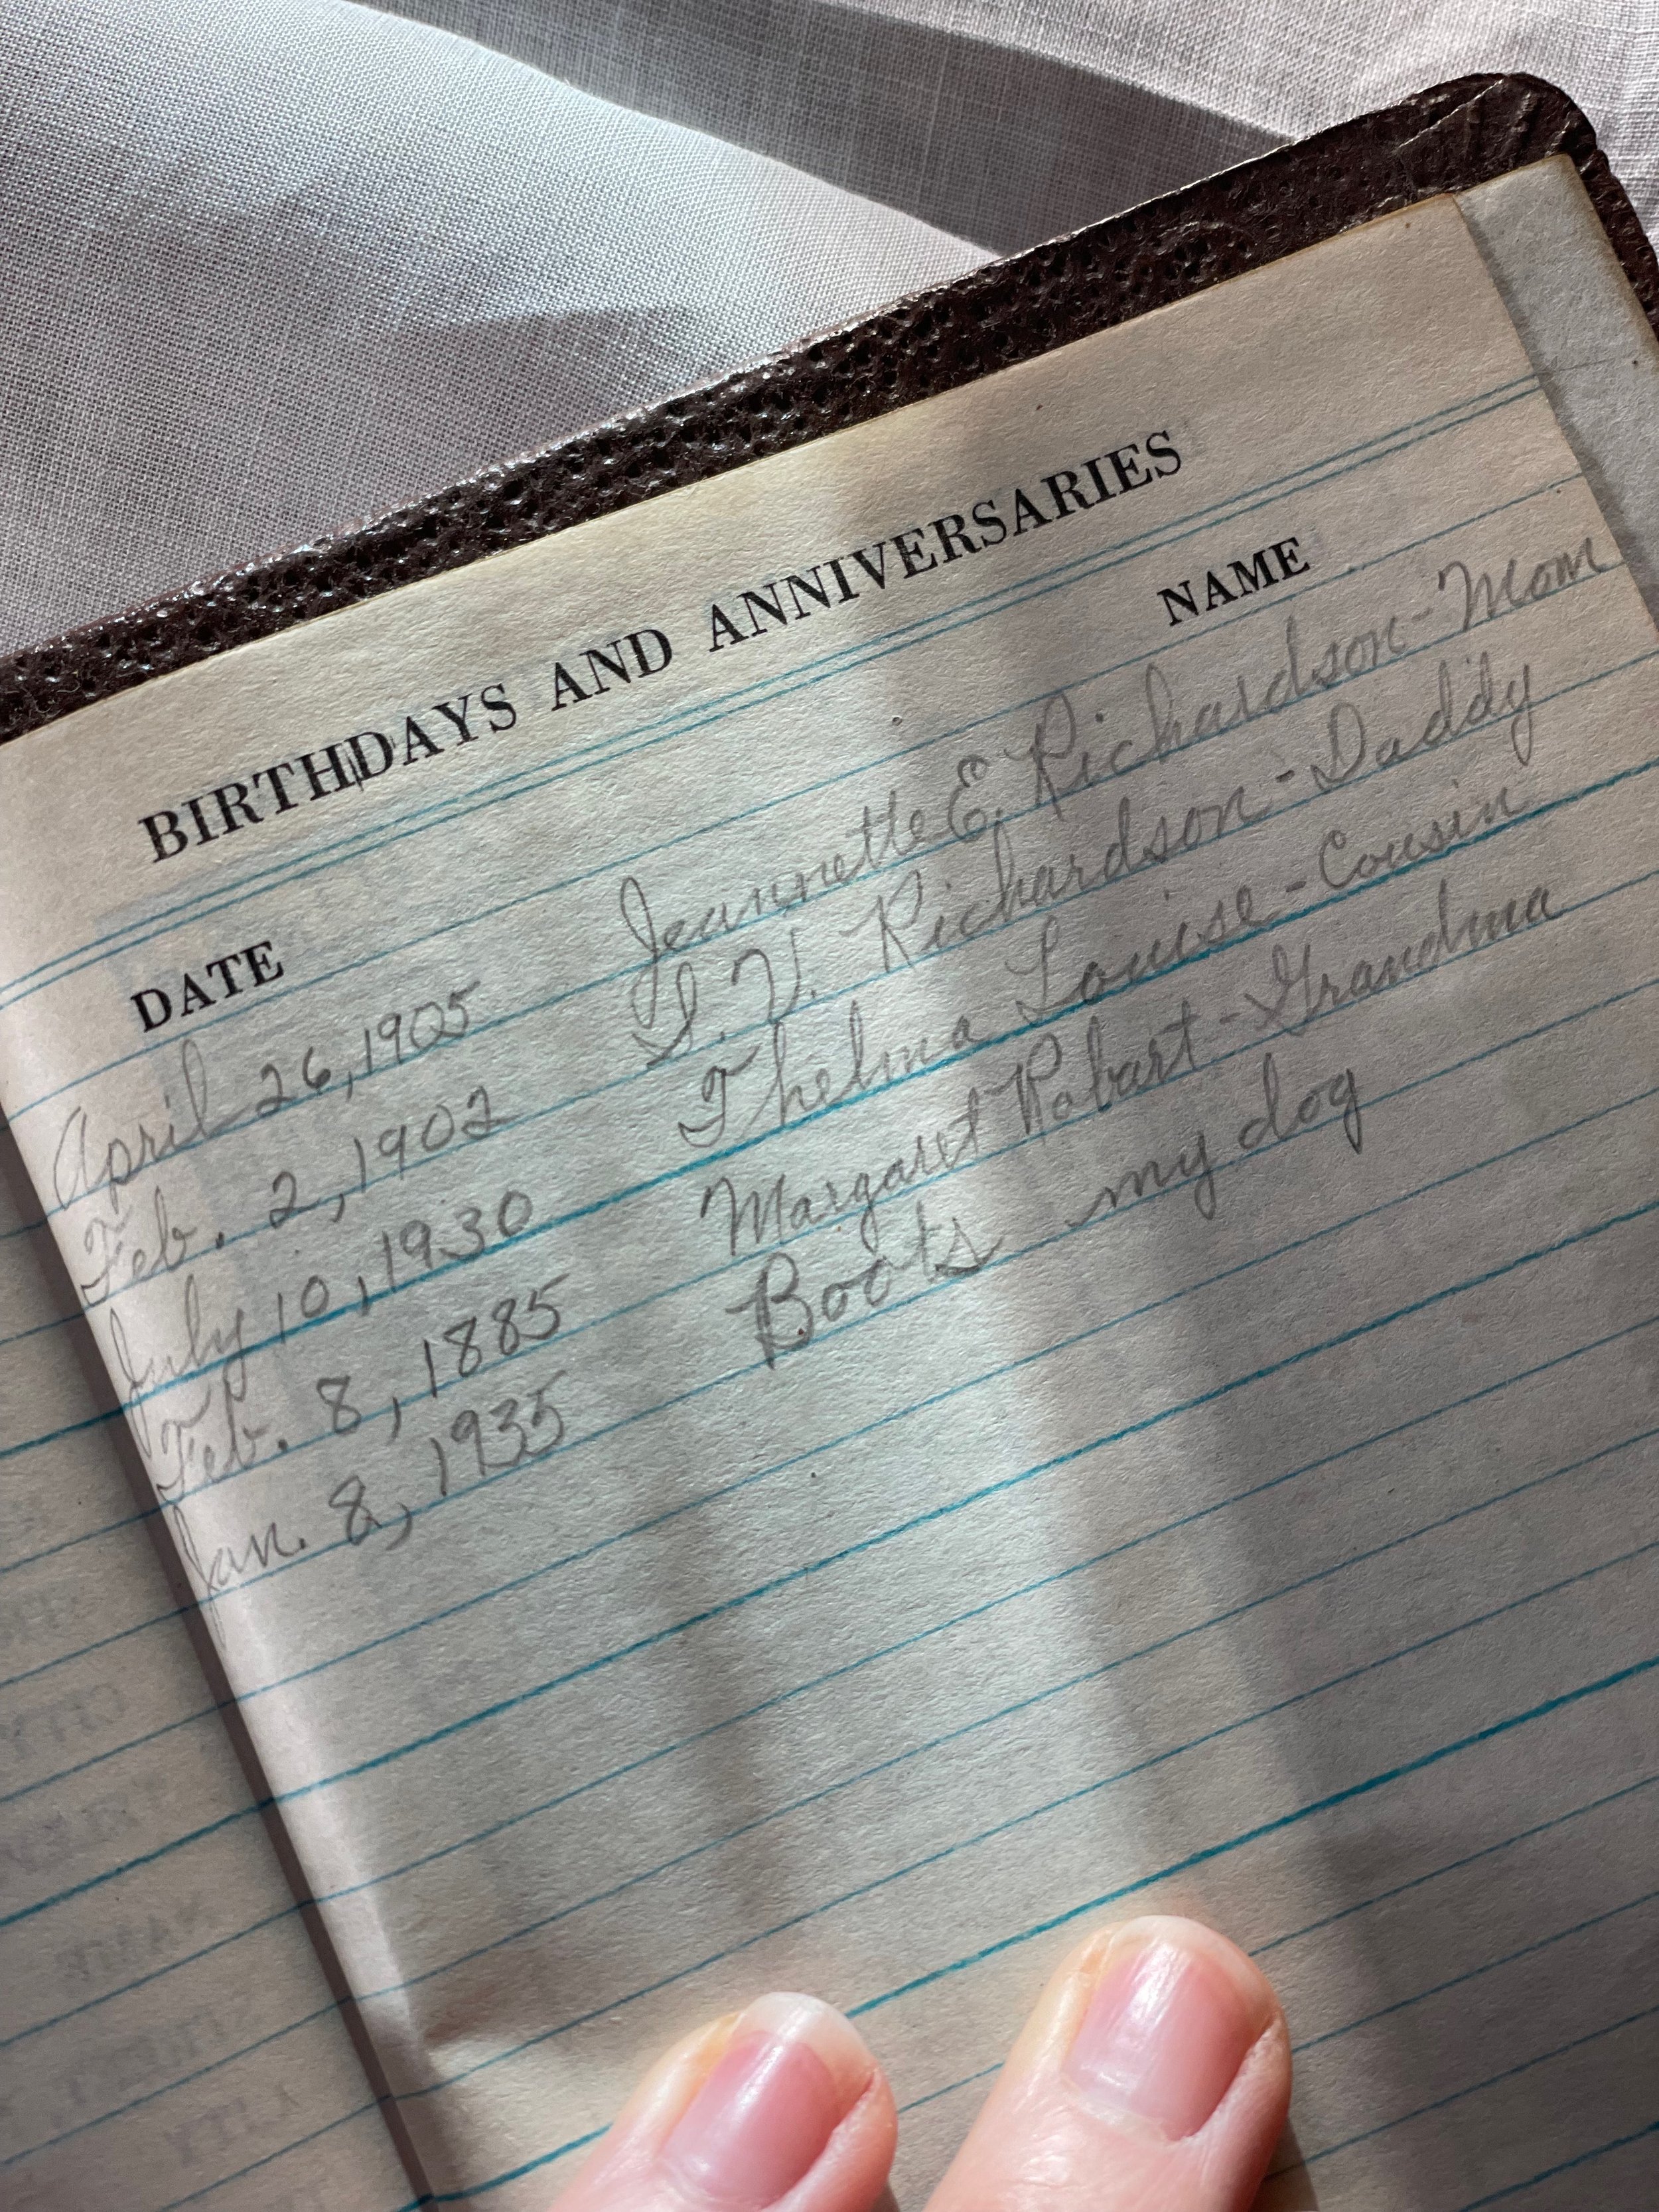 BIRTHDAYS AND ANNIVERSARIES
DATE NAME
April 26, 1905 Jeannette E. Richardson - Mom
Feb. 2, 1902 S. V. Richardson - Daddy
July 10, 1930 Thelma Louise - Cousin
Feb. 8, 1885 Margaret Robart - Grandma
Jan. 8, 1935 Boots my dog